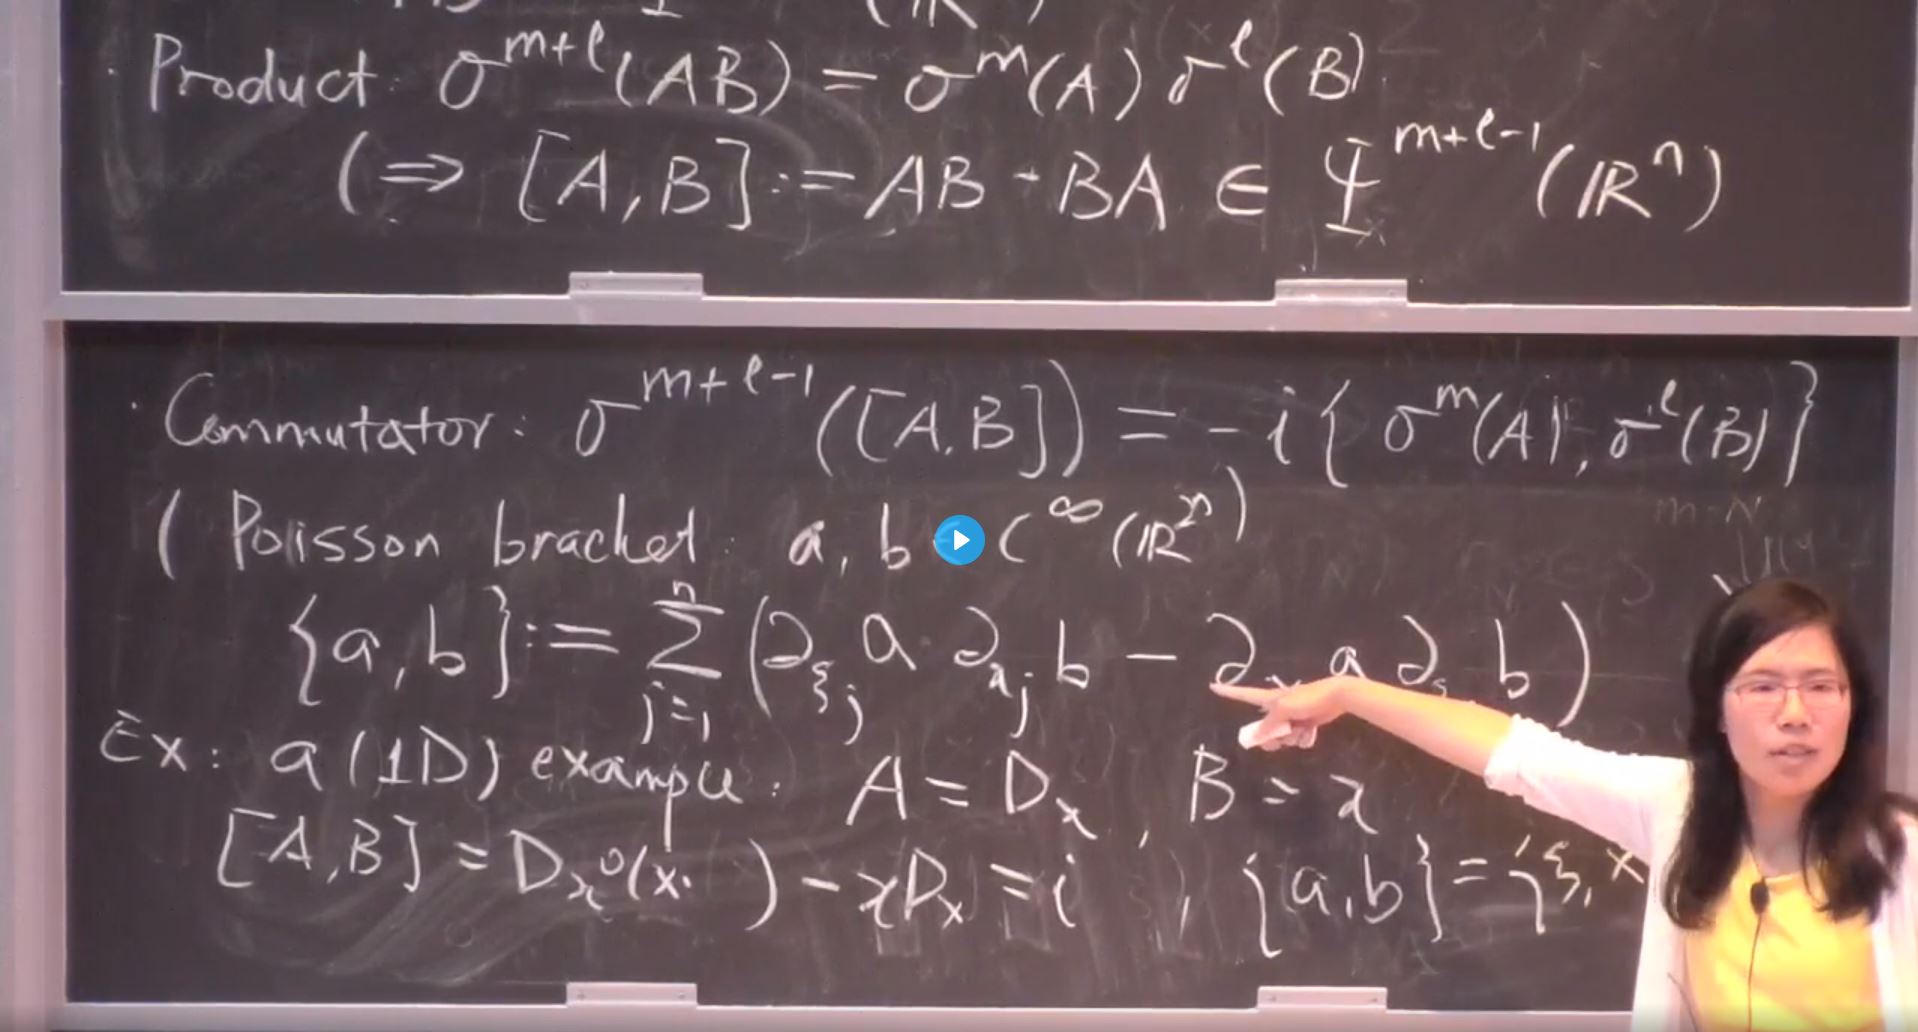 Product: σ^{m+ℓ}(AB) = σ^m(A) σ^ℓ(B)
(⇒ [A,B] := AB - BA ∈ Ψ^{m+ℓ-1}(ℝ^n)
· Commutator: σ^{m+ℓ-1}([A,B]) = -i{σ^m(A), σ^ℓ(B)}
( Poisson bracket: a, b C^∞(ℝ^{2n})
{a,b} := Σ_{j=1}^n (∂_{ξ_j} a ∂_{x_j} b - ∂ a ∂ b)
Ex: a (1D) example: A = D_x, B = x
[A,B] = D_x∘(x· ) - xD_x = i , {a,b} = {ξ,x